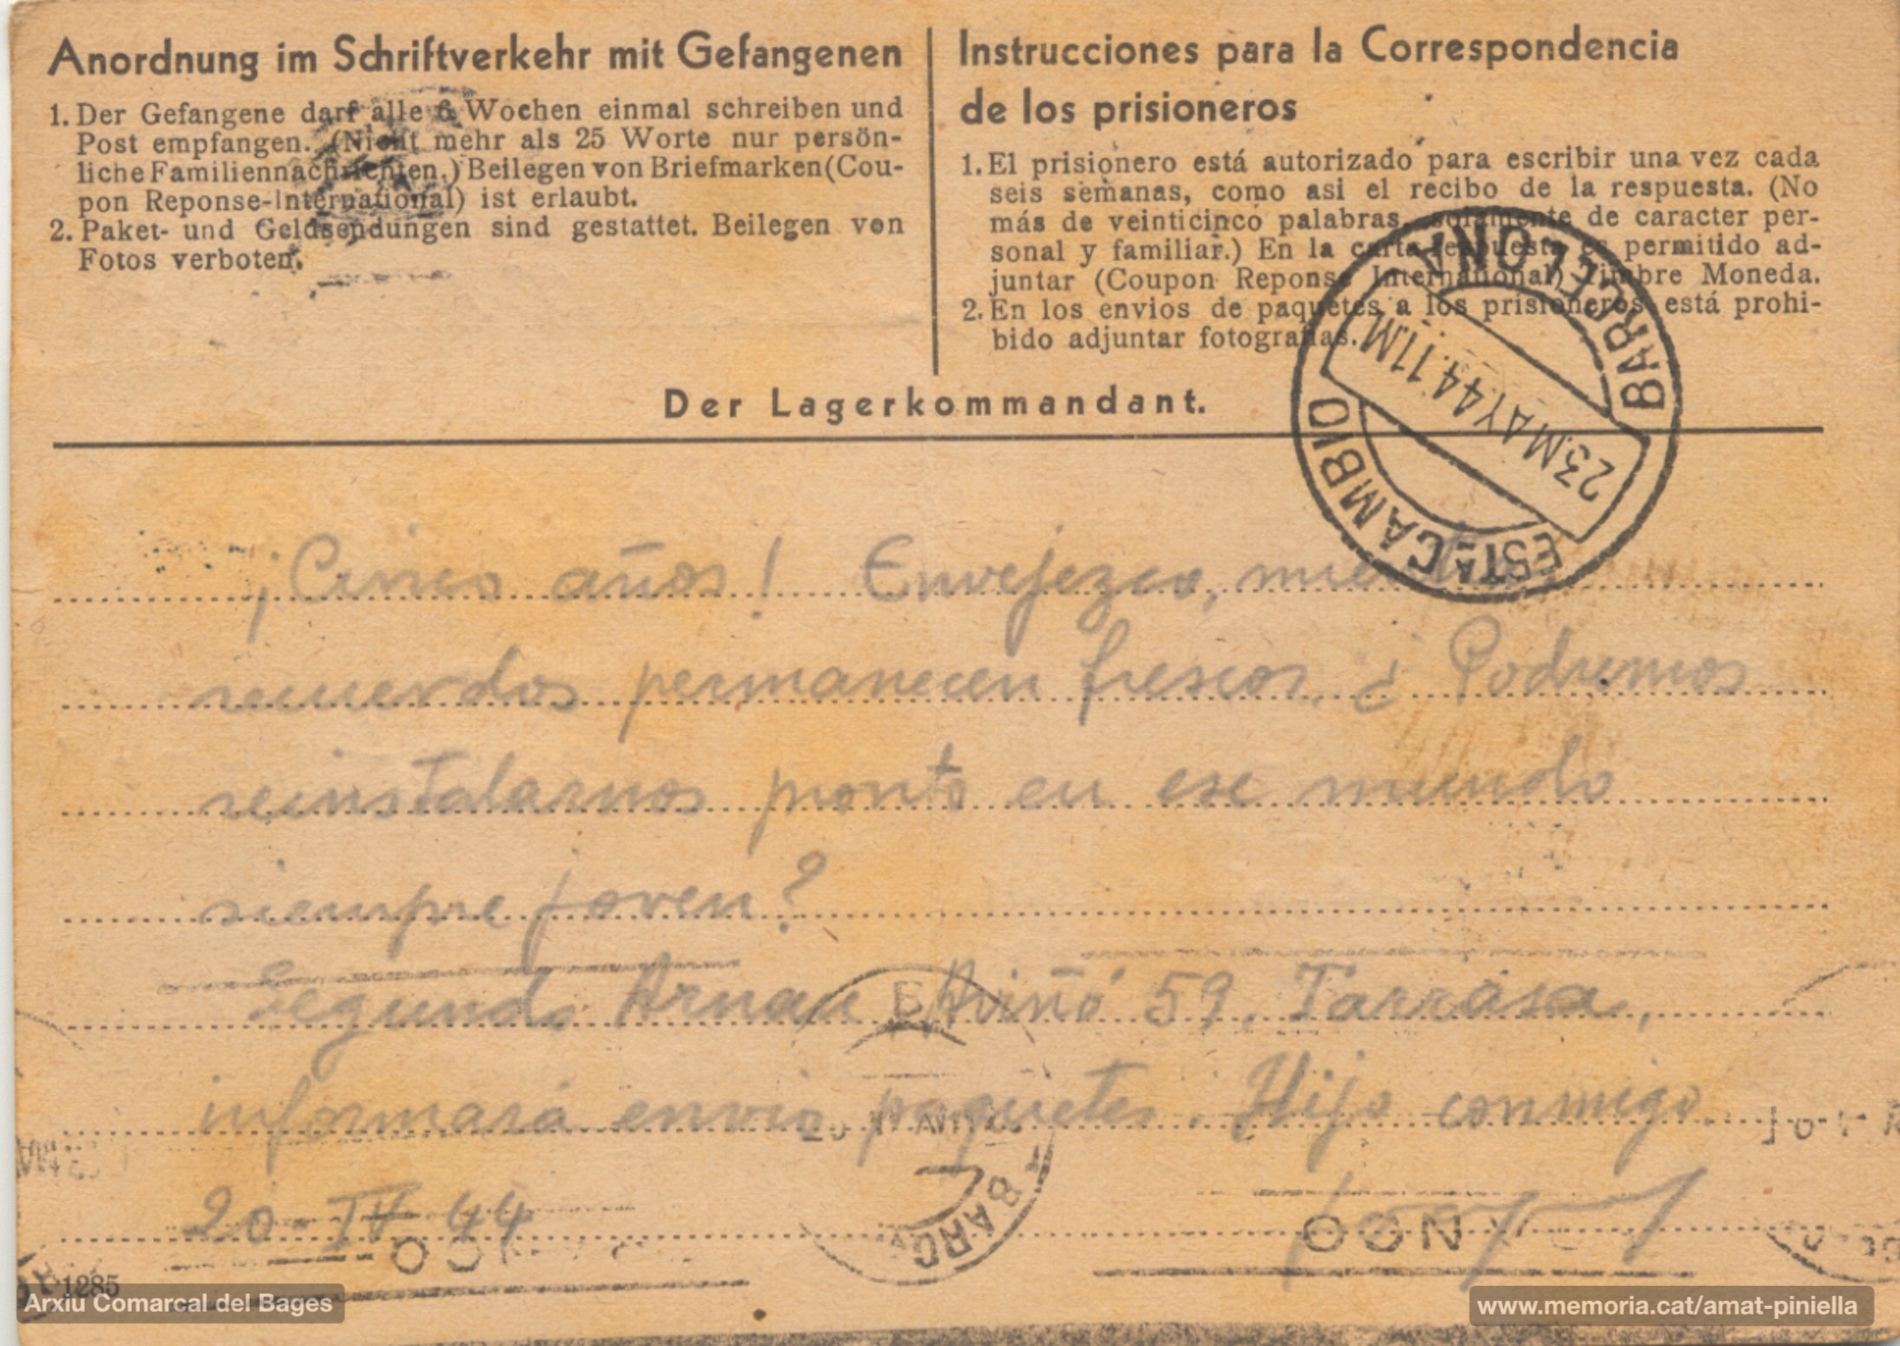 Anordnung im Schriftverkehr mit Gefangenen
1. Der Gefangene darf alle 6 Wochen einmal schreiben und
Post empfangen. (Nicht mehr als 25 Worte nur persön-
liche Familiennachrichten.) Beilegen von Briefmarken (Cou-
pon Reponse-International) ist erlaubt.
2. Paket- und Geldsendungen sind gestattet. Beilegen von
Fotos verboten.
Instrucciones para la Correspondencia
de los prisioneros
1. El prisionero está autorizado para escribir una vez cada
seis semanas, como asi el recibo de la respuesta. (No
más de veinticinco palabras, solamente de caracter per-
sonal y familiar.) En la carta respuesta es permitido ad-
juntar (Coupon Reponse International) Timbre Moneda.
2. En los envios de paquetes a los prisioneros está prohi-
bido adjuntar fotografias.
Der Lagerkommandant.
BARCELONA
23.MAY44.11M
ESTA CAMBIO
¡Cinco años! Envejezco,
recuerdos permanecen frescos. ¿Podremos
reinstalarnos pronto en ese mundo
siempre joven?
Segundo Arnau Miñó 59, Tarrasa,
informará envio paquetes. Hijo conmigo.
20-IV 44
BARC
1285
Arxiu Comarcal del Bages
www.memoria.cat/amat-piniella